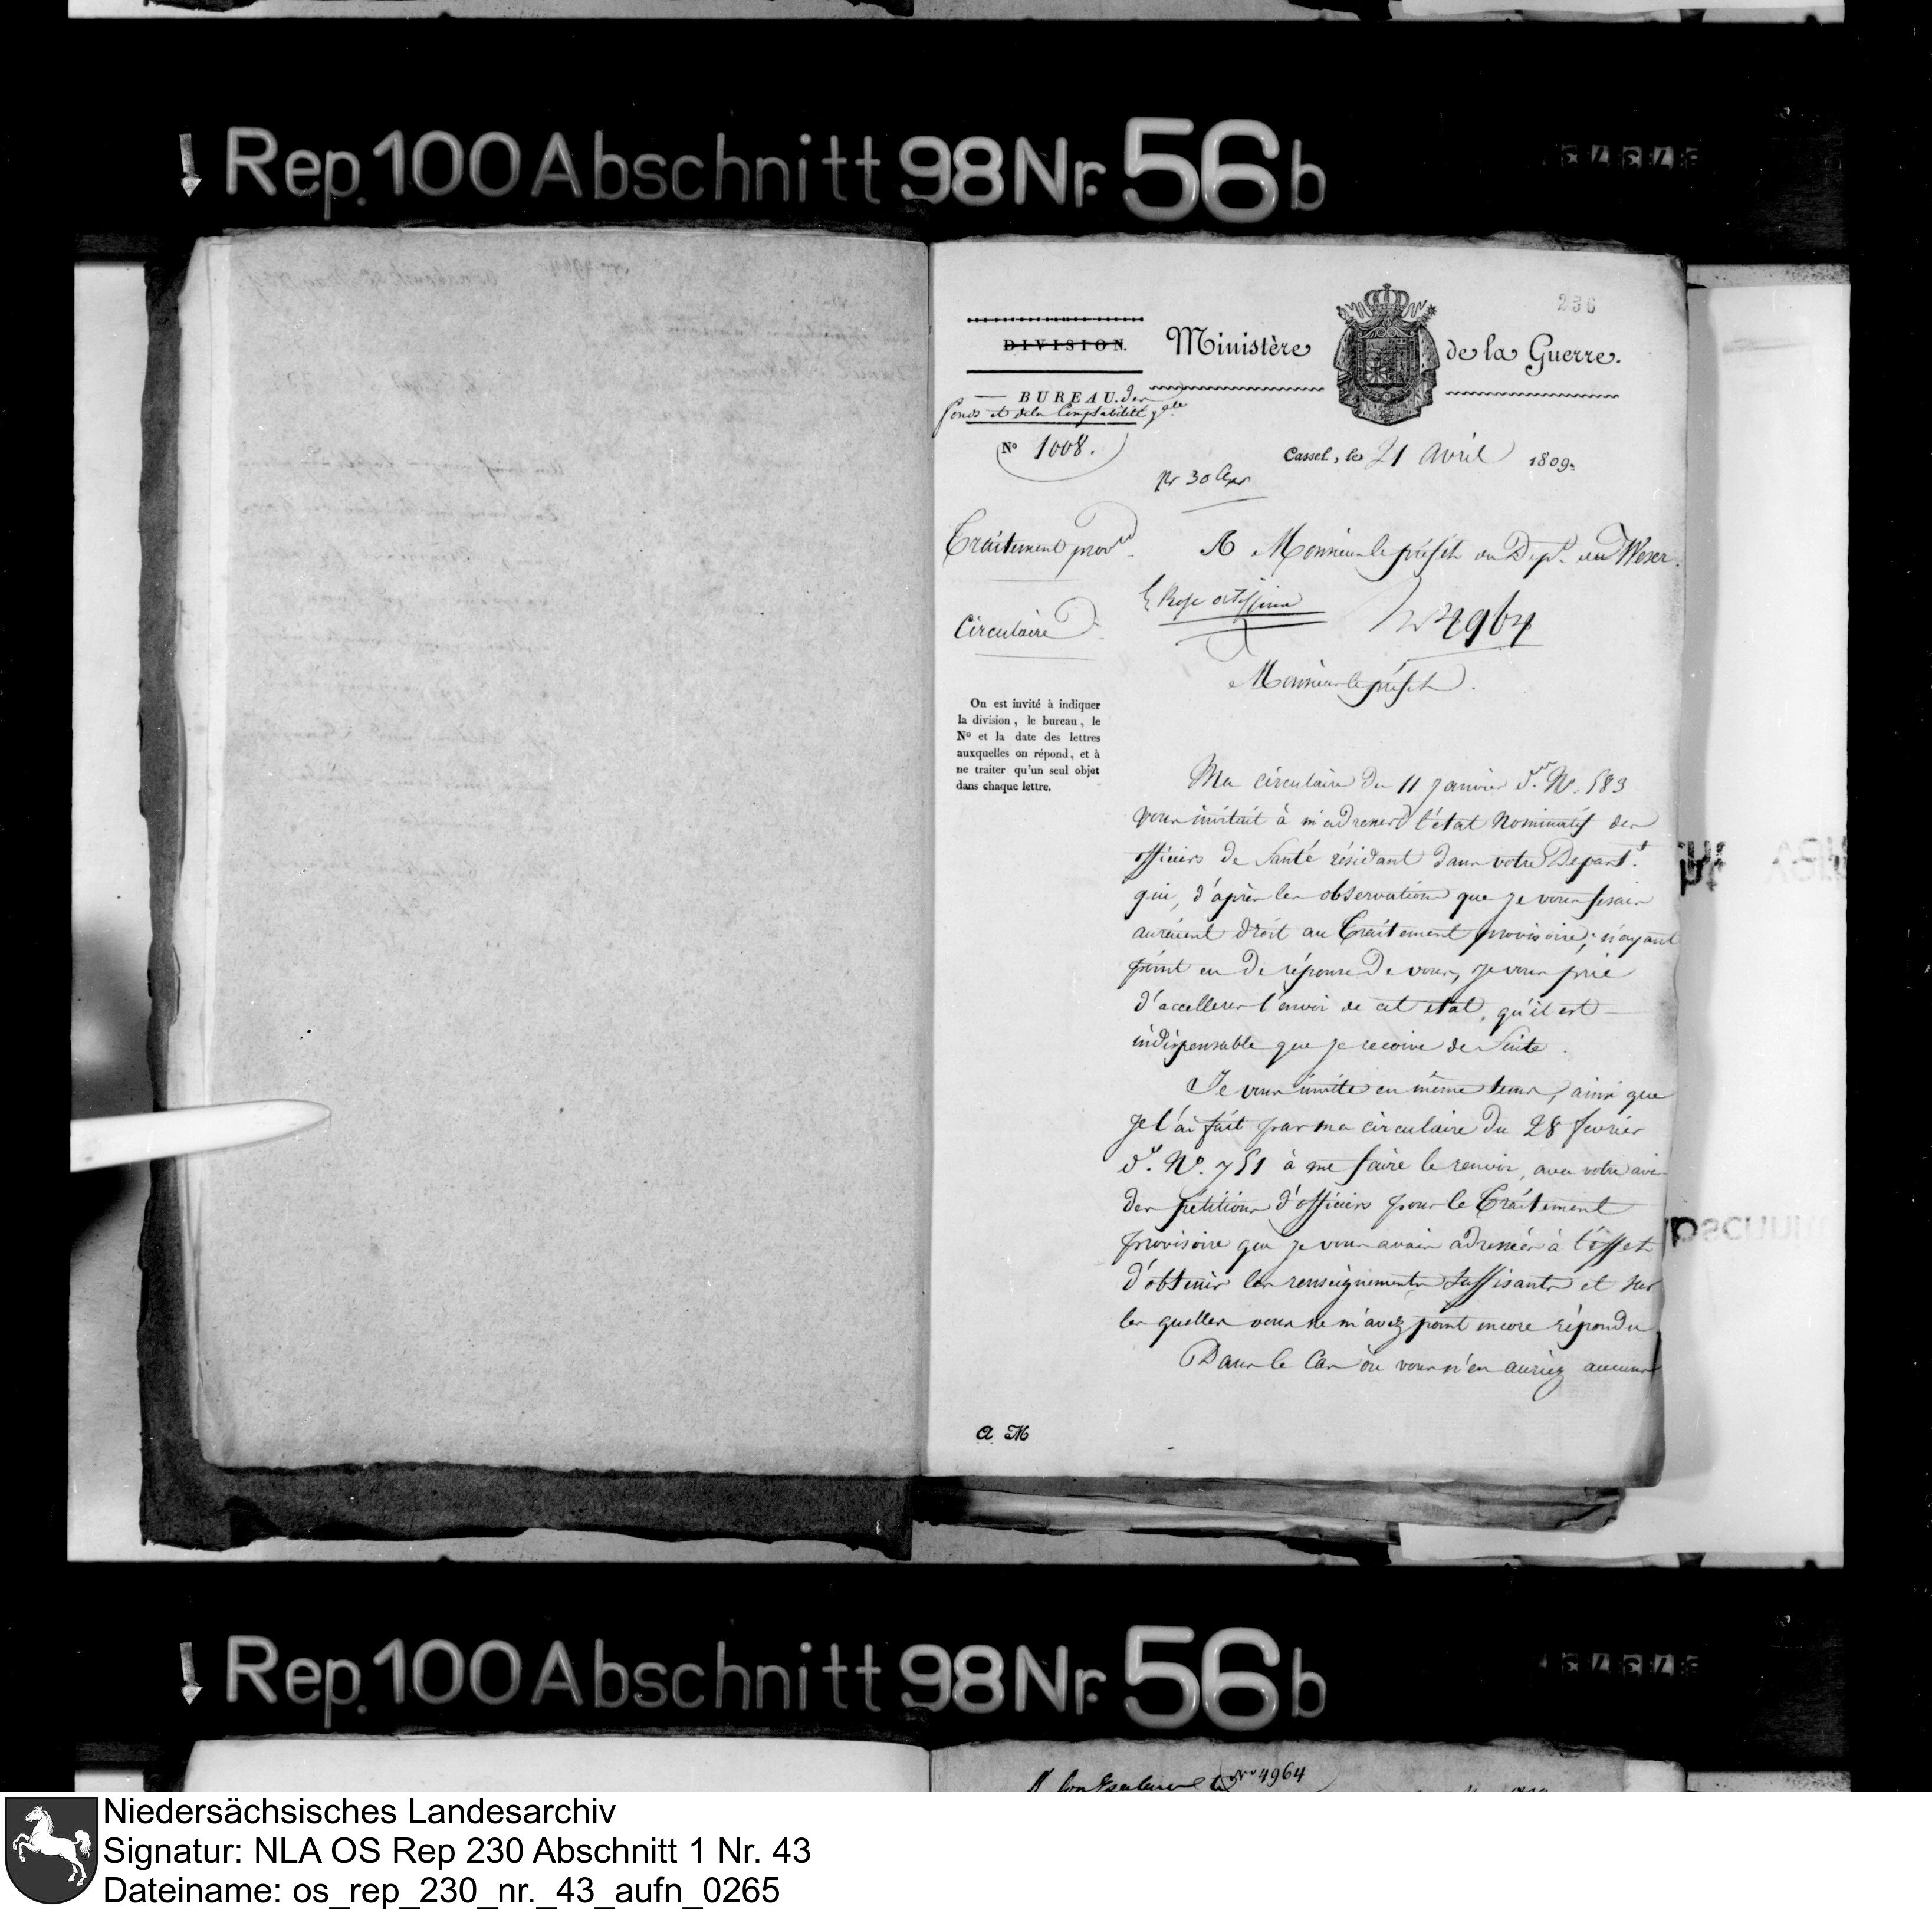 Rep. 100 Abschnitt 98 Nr. 56 b
236
DIVISION.
Ministère de la Guerre.
BUREAU. des
fonds et de la Comptabilité gle
No 1008.
Cassel, le 21 avril 1809.
pr 30 Apr
Traitement prov.re
A Monsieur le préfet du Dept. du Weser.
4964
Circulaire
Monsieur le préfet.
On est invité à indiquer
la division, le bureau, le
No et la date des lettres
auxquelles on répond, et à
ne traiter qu'un seul objet
dans chaque lettre.
Ma circulaire du 11 Janvier d.er No. 583
vous invitait à m'adresser l'état Nominatif des
officiers de Santé résidant dans votre Depart.t
qui, d'après les observations que je vous fesais
auraient droit au Traitement provisoire; n'ayant
point eu de réponse de vous, je vous prie
d'accellerer l'envoi de cet etat, qu'il est
indispensable que je recoive de Suite.
Je vous invite en même tems, ainsi que
je l'ai fait par ma circulaire du 28 fevrier
d.r No. 751 à me faire le renvoi, avec votre avis
des pétitions d'officiers pour le Traitement
provisoire que je vous avais adressées à l'effet
d'obtenir les renseignements suffisants et sur
les quelles vous ne m'avez point encore répondu
Dans le Cas où vous n'en auriez aucune
A M
Rep. 100 Abschnitt 98 Nr. 56 b
No 4964
Niedersächsisches Landesarchiv
Signatur: NLA OS Rep 230 Abschnitt 1 Nr. 43
Dateiname: os_rep_230_nr._43_aufn_0265